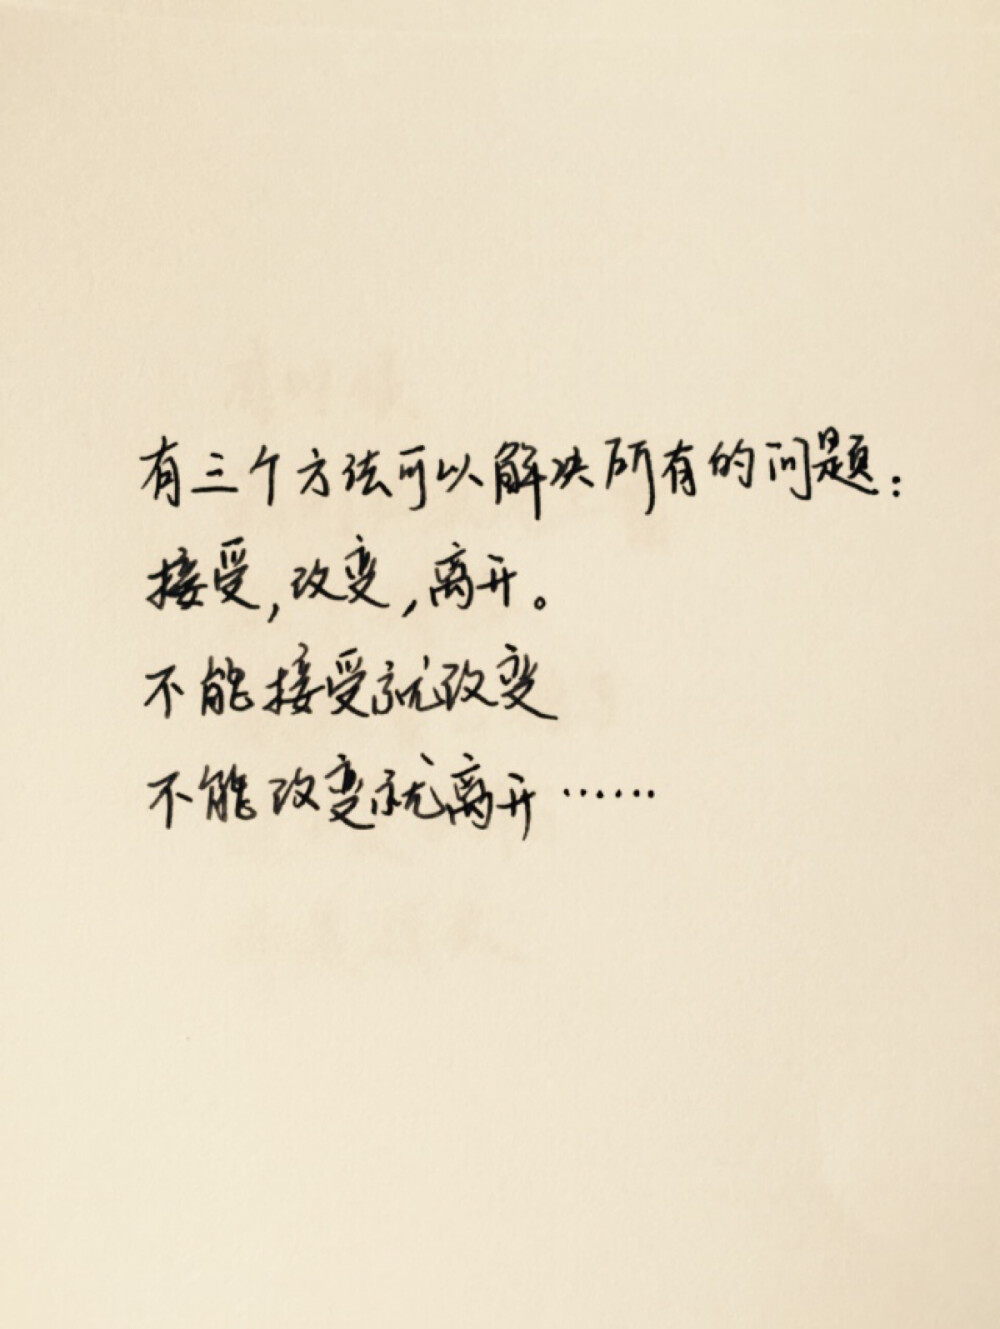 有三个方法可以解决所有的问题：
接受,改变,离开。
不能接受就改变
不能改变就离开……